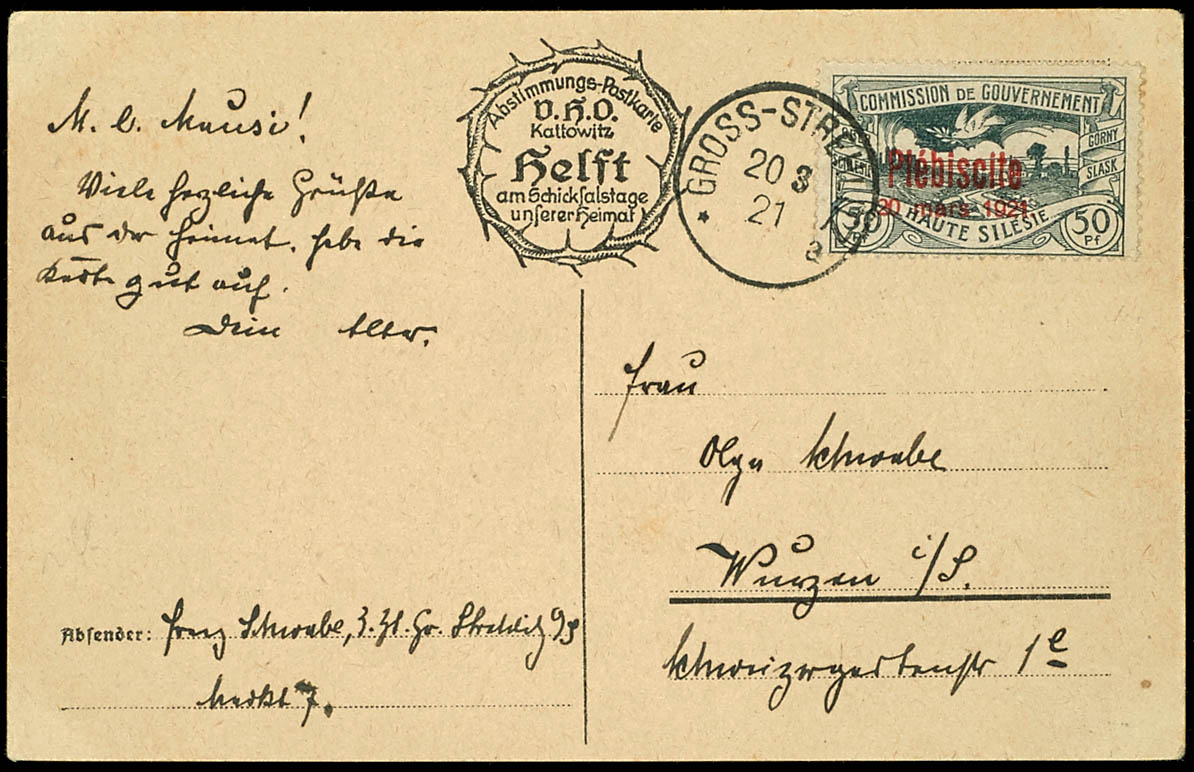 M. l. Mausi!
Viele herzliche Grüße
aus der Heimat. hebe die
Karte gut auf.
Dein Alter.
Abstimmungs-Postkarte
V.H.O.
Kattowitz
Helft
am Schicksalstage
unserer Heimat
GROSS-STREHLITZ
20 3
21
a
COMMISSION DE GOUVERNEMENT
GORNY
SLASK
Plébiscite
20 mars 1921
HAUTE SILESIE
50
50
Pf
Frau
Olga Schwabe
Wurzen i/S.
Schweizergartenstr 1e
Absender: Franz Schwabe, z. Zt. Gr. Strehlitz O/S
Markt 7.